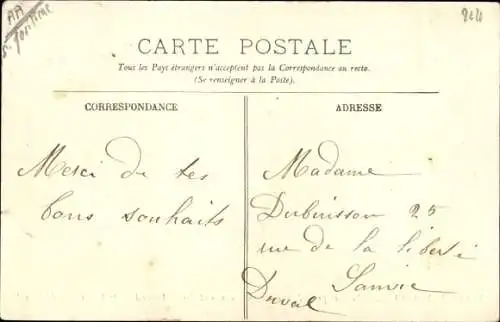 AA
244
CARTE POSTALE
Tous les Pays étrangers n'acceptent pas la Correspondance au recto.
(Se renseigner à la Poste).
CORRESPONDANCE
ADRESSE
Merci de tes
bons souhaits
Madame
Dubuisson 25
rue de la liberté
Sanvic
Duval